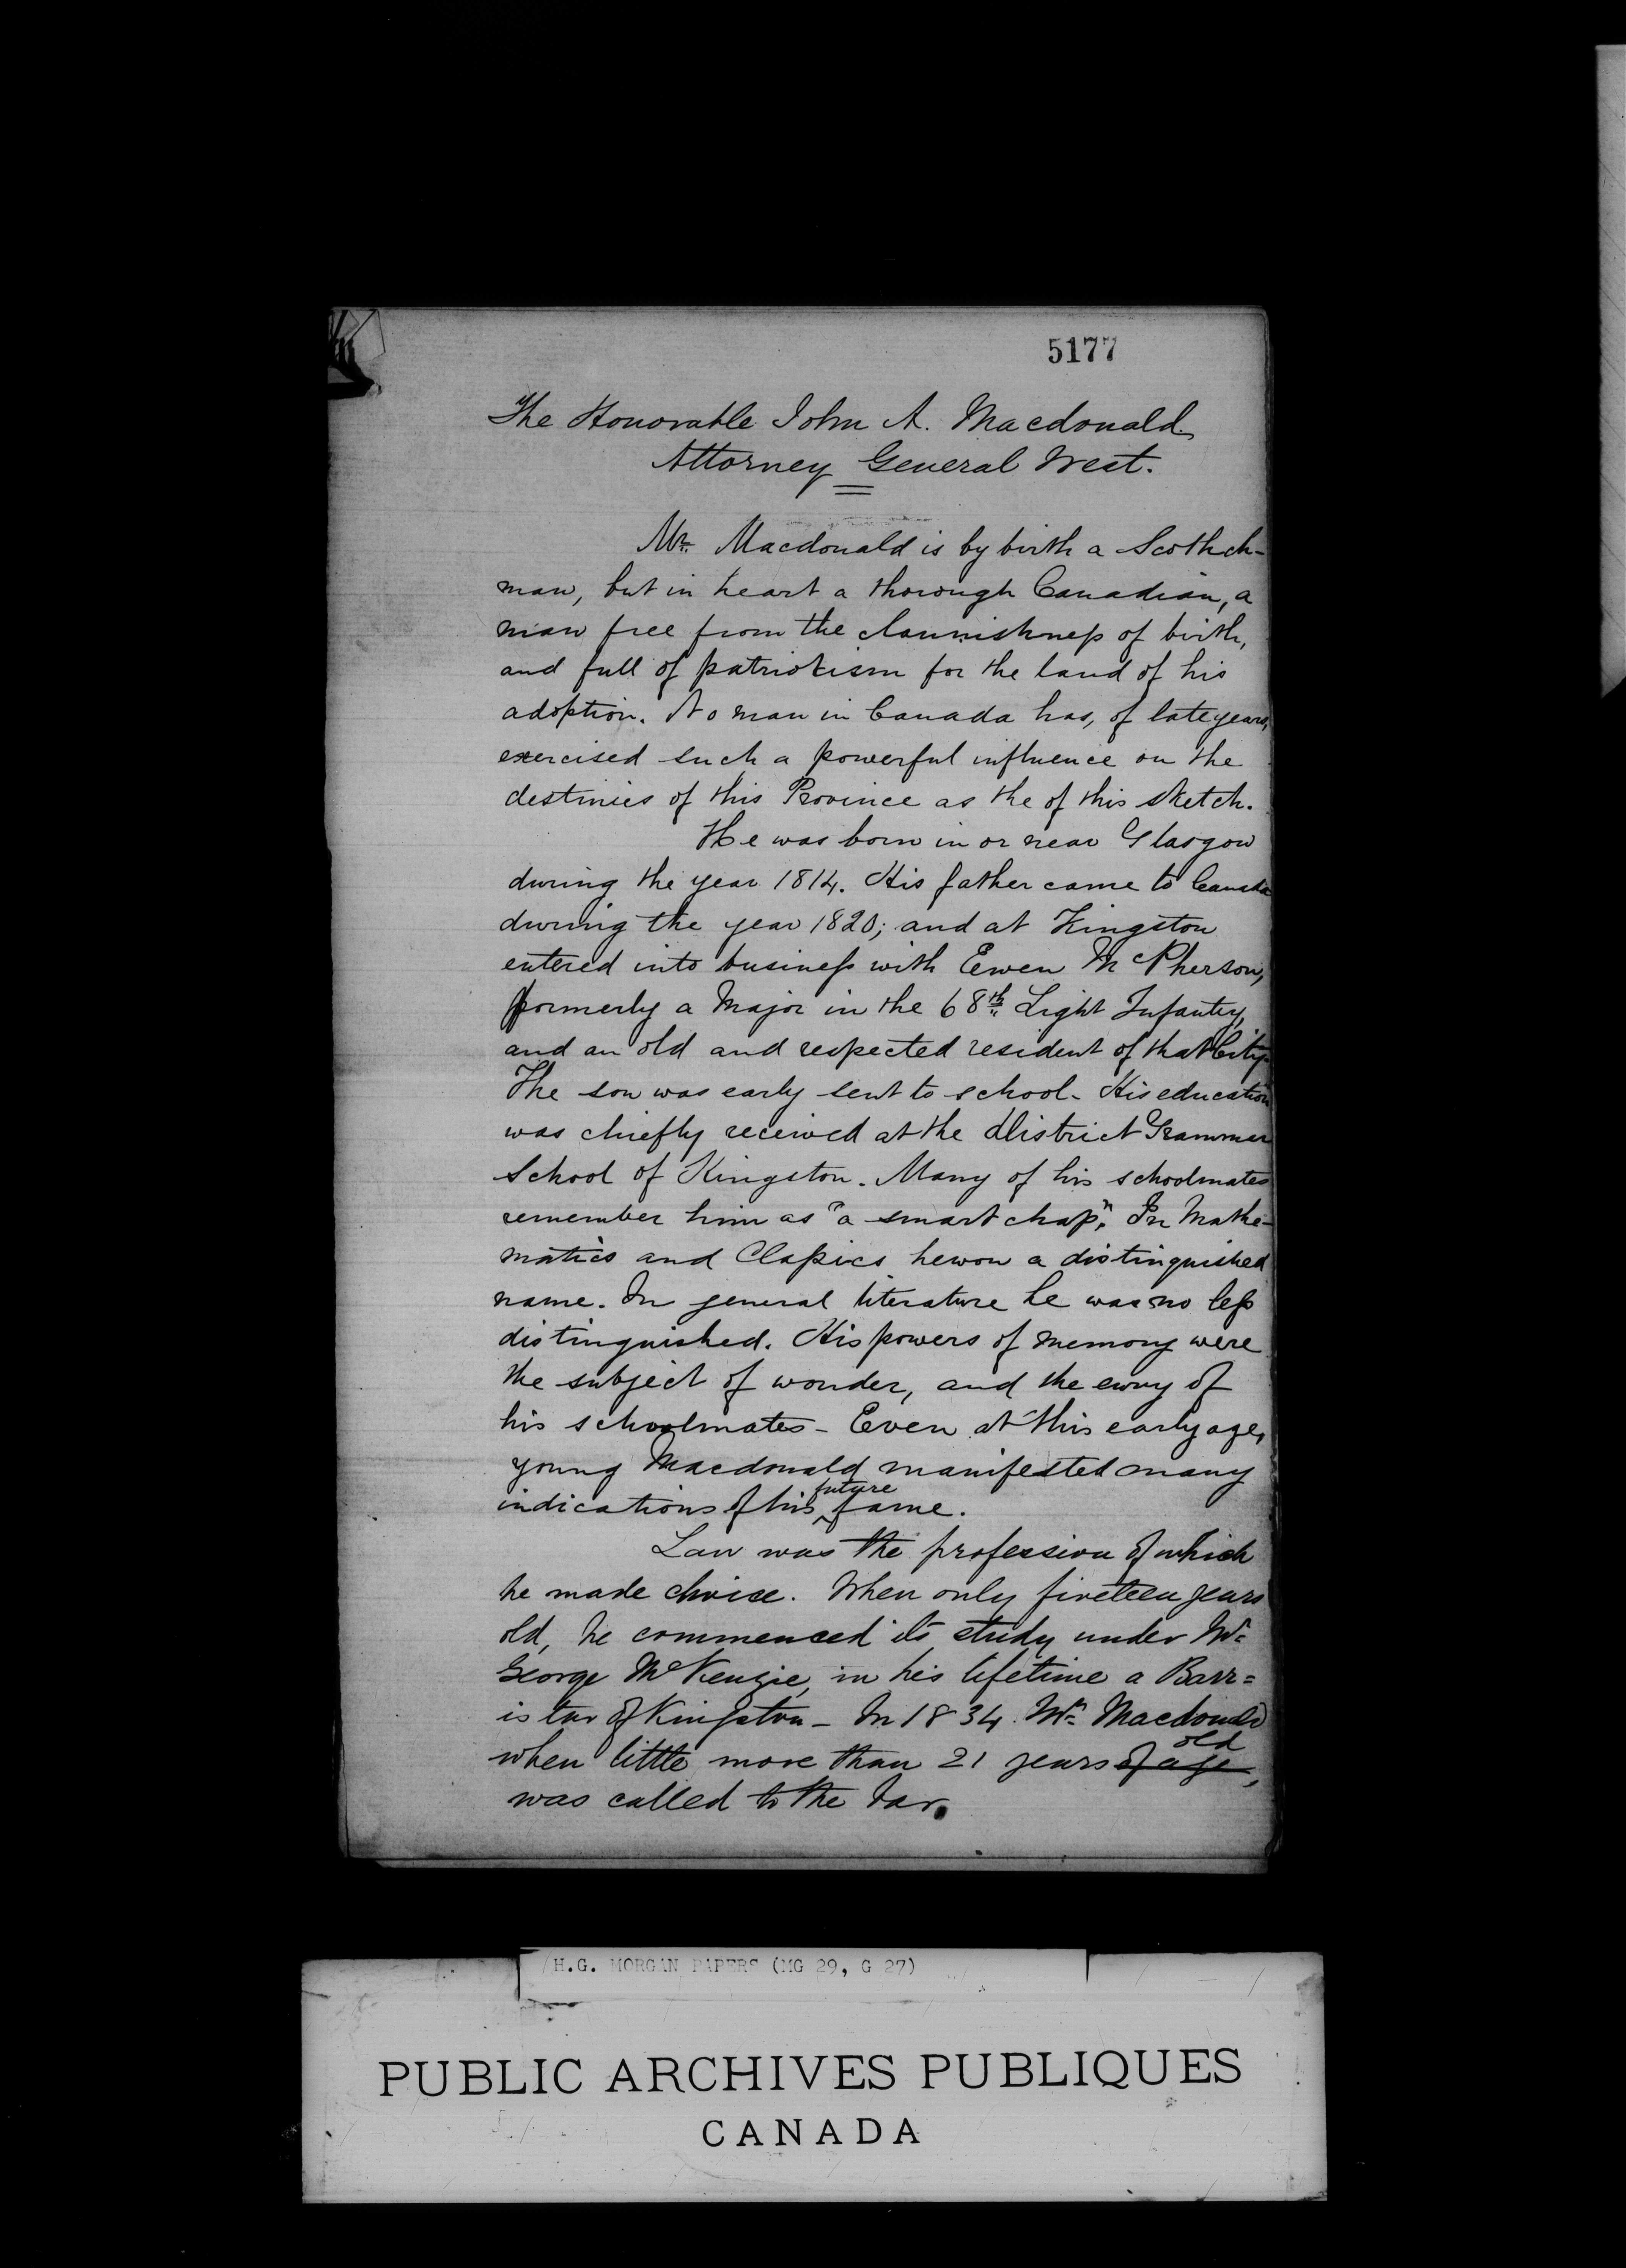 5177
The Honorable John A. Macdonald.
Attorney General West.
Mr. Macdonald is by birth a Scothch-
man, but in heart a thorough Canadian, a
man free from the clannishness of birth,
and full of patriotism for the land of his
adoption. No man in Canada has, of late years,
exercised such a powerful influence on the
destinies of this Province as the of this sketch.
He was born in or near Glasgow
during the year 1814. His father came to Canada
during the year 1820; and at Kingston
entered into business with Ewen McPherson,
formerly a Major in the 68th Light Infantry,
and an old and respected resident of that City.
The son was early sent to school. His education
was chiefly received at the District Grammar
School of Kingston. Many of his schoolmates
remember him as "a smart chap". In Mathe-
matics and Classics he won a distinguished
name. In general literature he was no less
distinguished. His powers of memory were
the subject of wonder, and the envy of
his schoolmates - Even at this early age,
young Macdonald manifested many
indications of his future fame.
Law was the profession of which
he made choice. When only fiveteen years
old, he commenced its study under Mr.
George McKenzie, in his lifetime a Barr=
ister of Kingston - In 1834 Mr. Macdonald
when little more than 21 years of age old,
was called to the bar.
H.G. MORGAN PAPERS (MG 29, G 27)
PUBLIC ARCHIVES PUBLIQUES
CANADA